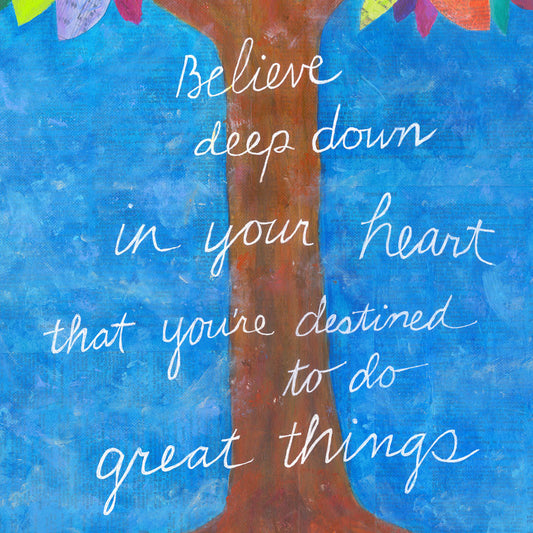 Believe
deep down
in your heart
that you're destined
to do
great things